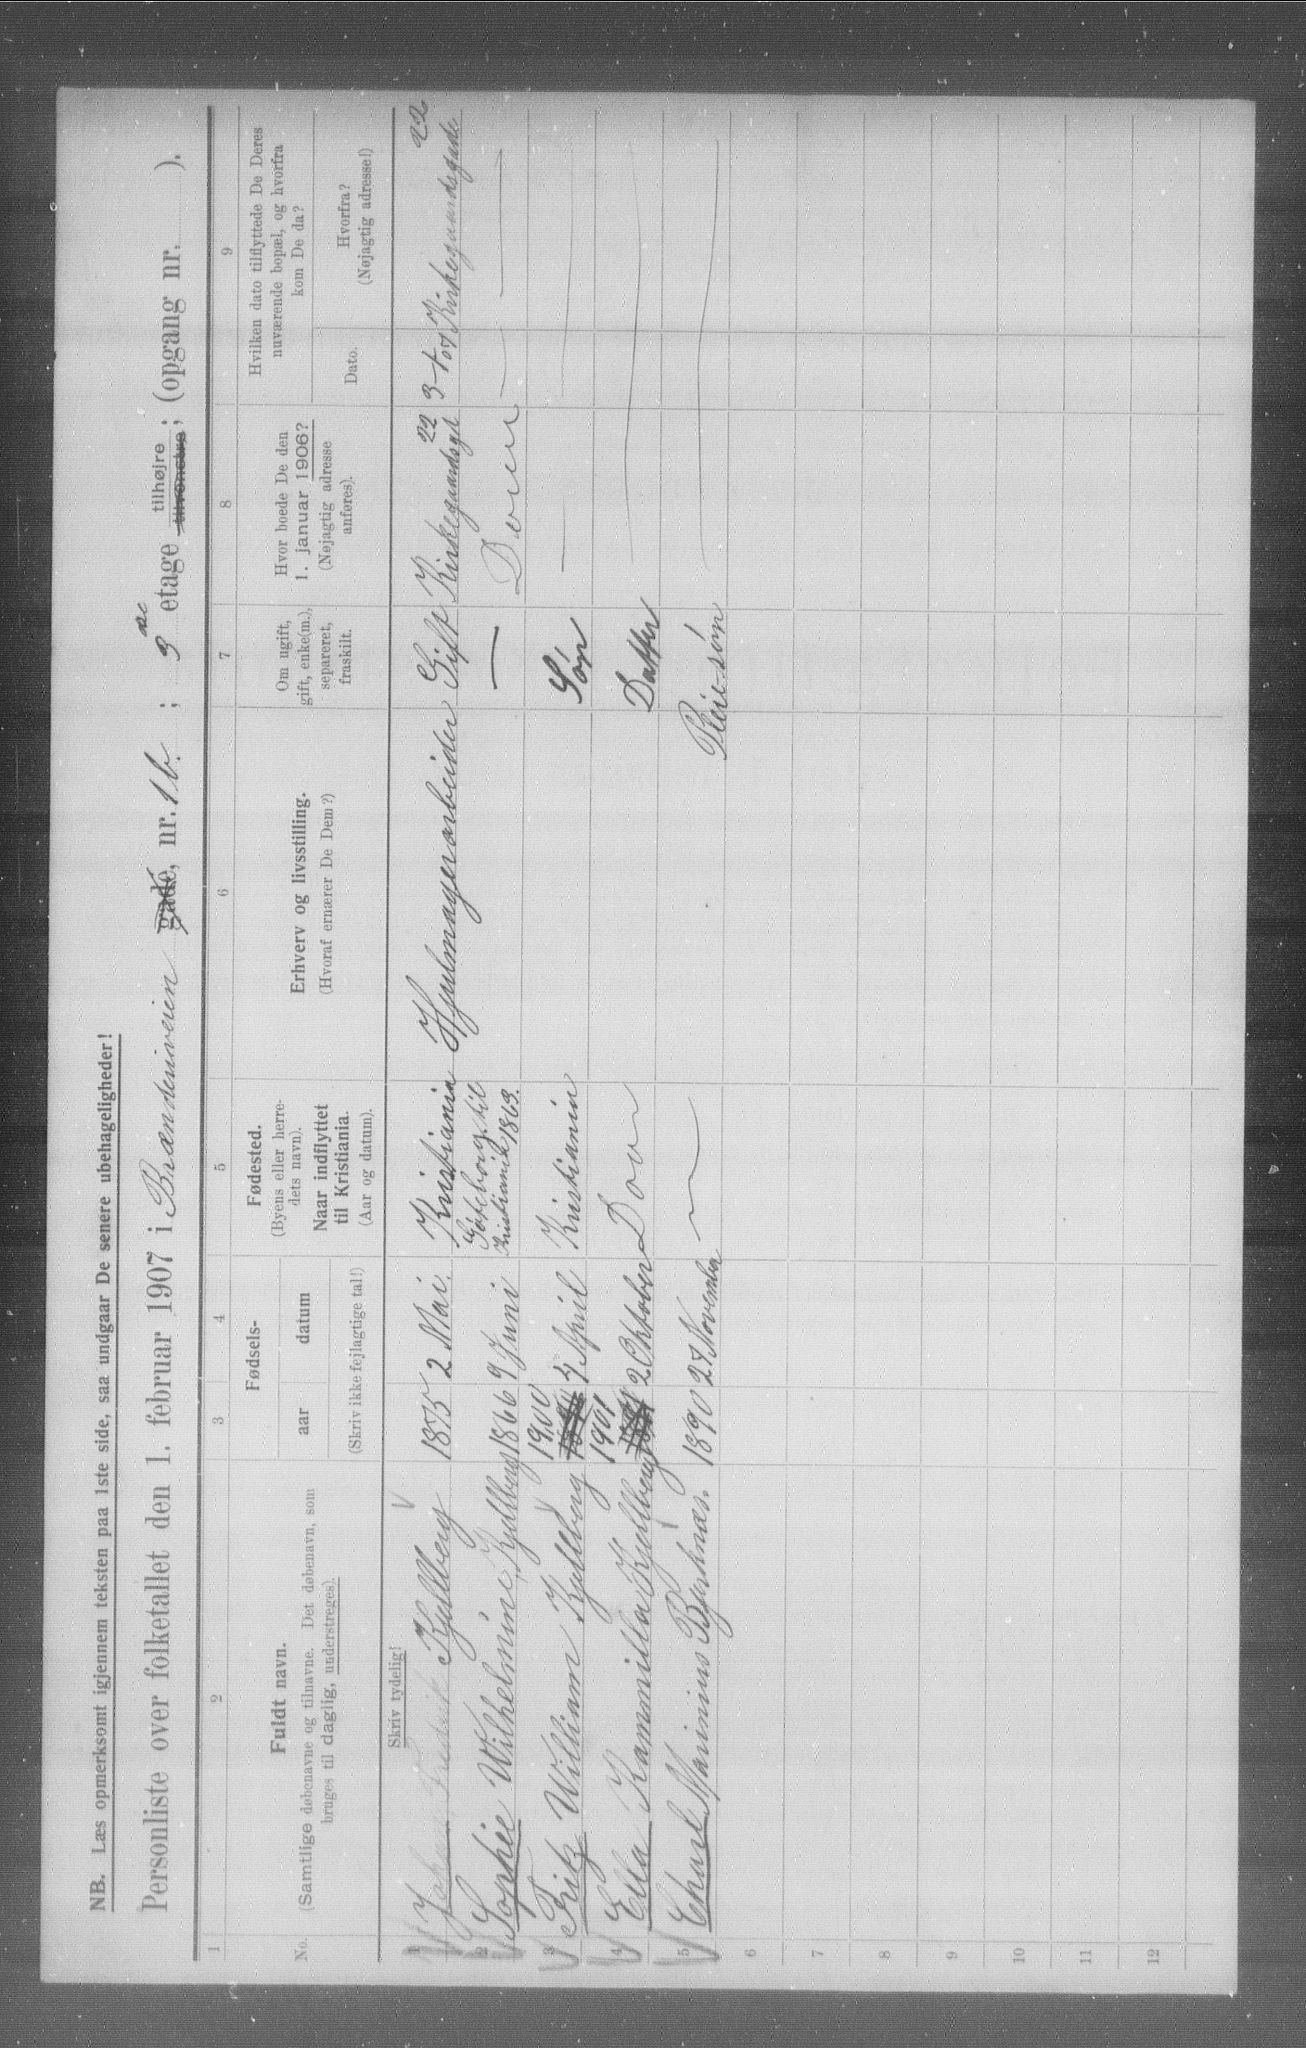 NB. Læs opmerksomt igjennem teksten paa 1ste side, saa undgaar De senere ubehageligheder!
Personliste over folketallet den 1. februar 1907 i Brænderiveien gade, nr. 1b. ; 3 etage tilhøjre tilvenstre ; (opgang nr. ).
1 2 3 4 5 6 7 8 9
No.
Fuldt navn.
(Samtlige døbenavne og tilnavne. Det døbenavn, som
bruges til daglig, understreges).
Fødsels-
aar datum
(Skriv ikke fejlagtige tal!)
Fødested.
(Byens eller herre-
dets navn).
Naar indflyttet
til Kristiania.
(Aar og datum).
Erhverv og livsstilling.
(Hvoraf ernærer De Dem?)
Om ugift,
gift, enke(m.),
separeret,
fraskilt.
Hvor boede De den
1. januar 1906?
(Nøjagtig adresse
anføres).
Hvilken dato tilflyttede De Deres
nuværende bopæl, og hvorfra
kom De da?
Dato.
Hvorfra?
(Nøjagtig adresse!)
Skriv tydelig!
1 Johan Fredrik Kjellberg 1875 2 Mai. Kristiania Hjulmagerarbeider Gift Kirkegaardsgd 22 Kirkegaardsgade 22
2 Sophie Wilhelmine Kjellberg 1866 9 Juni Gøteborg, til Kristiania 1869. — Do
3 Fritz William Kjellberg 1900 7 April Kristiania Søn
4 Ella Kammilla Kjellberg 1901 2 Oktober Do Datter
5 Charl Marinius Bjerknæs. 1890 27 November — Pleiesøn
6
7
8
9
10
11
12